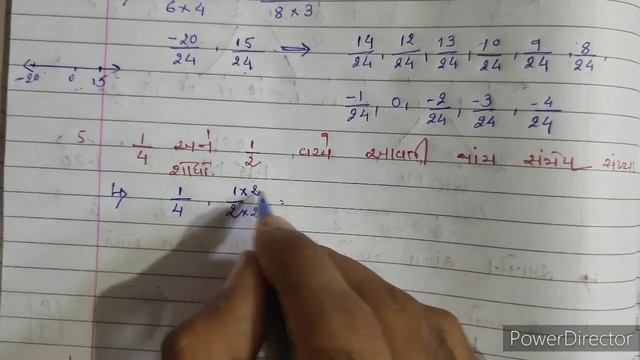 6×4 8×3
-20/24 , 15/24 ⟹ 14/24 , 12/24 , 13/24 , 10/24 , 9/24 , 8/24 ,
-20 0 15
-1/24 , 0 , -2/24 , -3/24 , -4/24
5. 1/4 અને 1/2 વચ્ચે આવતી પાંચ સંમેય સંખ્યા
શોધો.
↳ 1/4 , 1×2/2×2 =
PowerDirector